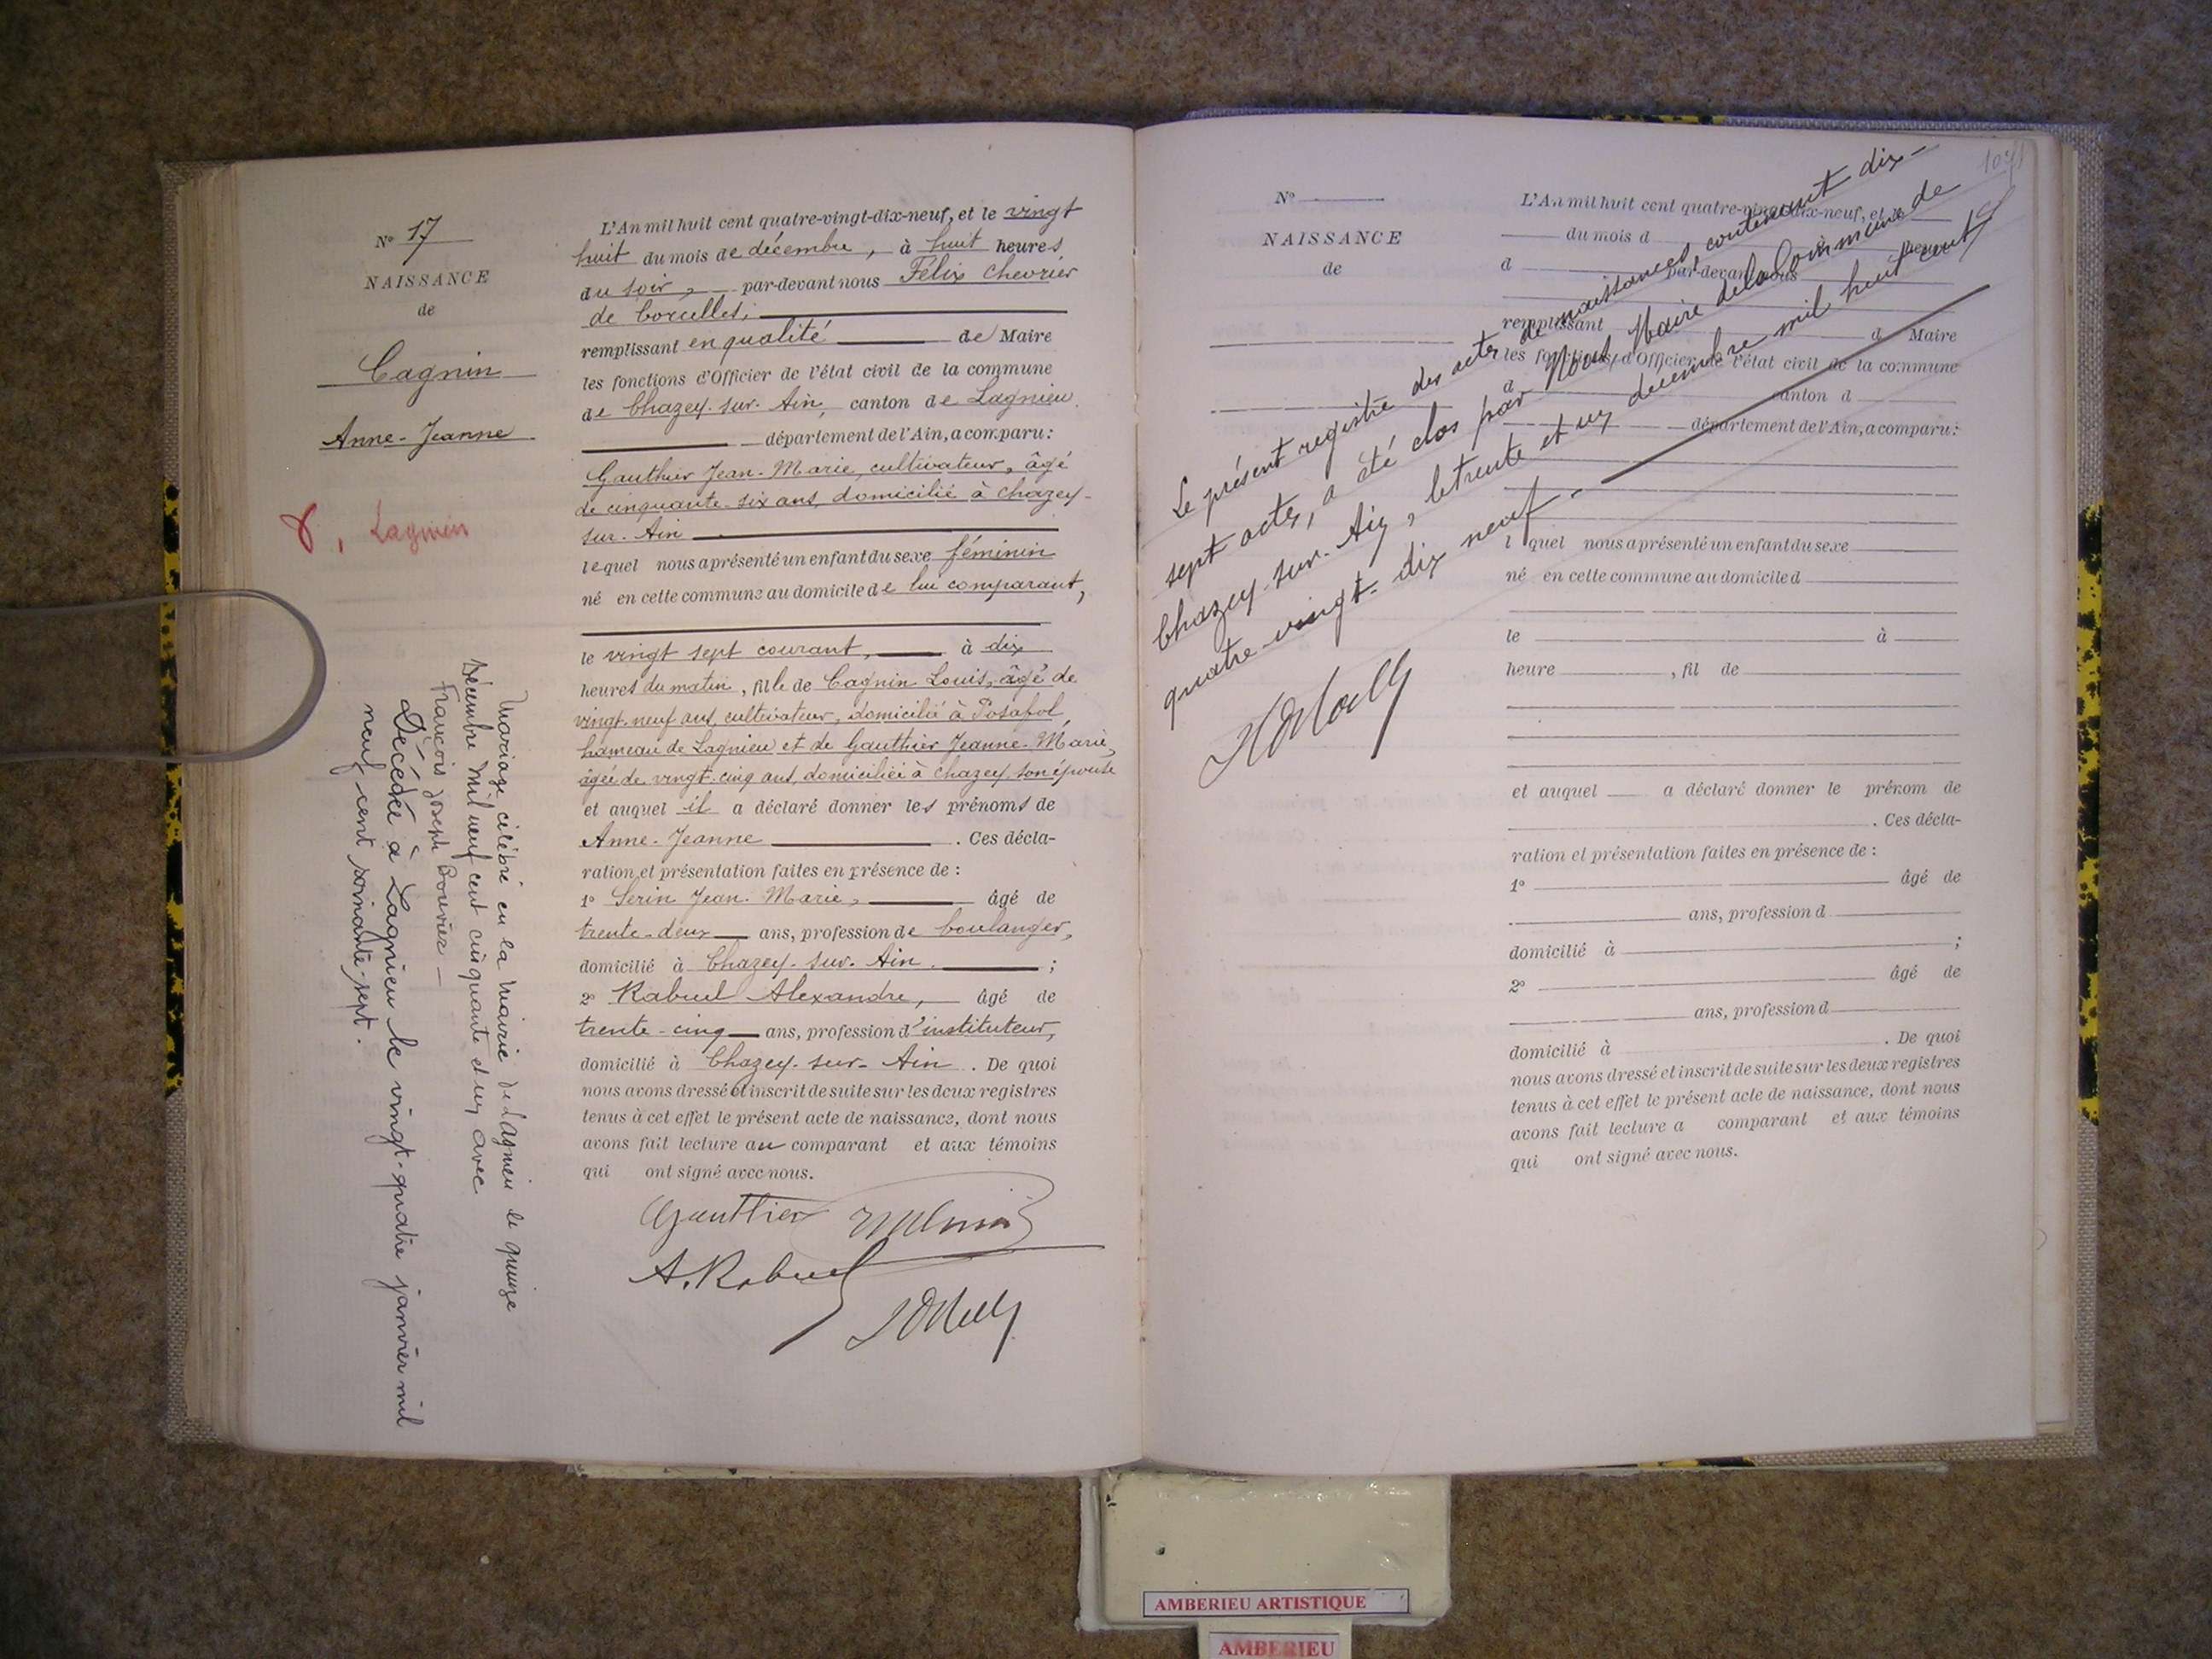 N° 17
NAISSANCE
de
Cagnin
Anne-Jeanne
8, Lagnieu
Mariage célébré en la mairie de Lagnieu le quinze
Décembre mil neuf cent cinquante et un avec
François Joseph Bouvier —
Décédée à Lagnieu le vingt-quatre janvier mil
neuf cent soixante-sept.
L'An mil huit cent quatre-vingt-dix-neuf, et le vingt
huit du mois de décembre, à huit heures
du soir, par-devant nous Félix Chevrier
de Corcelles,
remplissant en qualité de Maire
les fonctions d'Officier de l'état civil de la commune
de Chazey-sur-Ain, canton de Lagnieu
département de l'Ain, a comparu :
Gauthier Jean-Marie, cultivateur, âgé
de cinquante-six ans, domicilié à Chazey-
sur-Ain
lequel nous a présenté un enfant du sexe féminin
né en cette commune au domicile de lui comparant,
le vingt sept courant, à dix
heures du matin, fille de Cagnin Louis, âgé de
vingt-neuf ans, cultivateur, domicilié à Posafol,
hameau de Lagnieu et de Gauthier Jeanne-Marie,
âgée de vingt-cinq ans, domiciliée à Chazey, son épouse
et auquel il a déclaré donner les prénoms de
Anne-Jeanne. Ces décla-
ration et présentation faites en présence de :
1° Serin Jean-Marie, âgé de
trente-deux ans, profession de boulanger,
domicilié à Chazey-sur-Ain ;
2° Rabuel Alexandre, âgé de
trente-cinq ans, profession d'instituteur,
domicilié à Chazey-sur-Ain. De quoi
nous avons dressé et inscrit de suite sur les deux registres
tenus à cet effet le présent acte de naissance, dont nous
avons fait lecture au comparant et aux témoins
qui ont signé avec nous.
Gauthier
A. Rabuel
107
N°
NAISSANCE
de
L'An mil huit cent quatre-vingt-dix-neuf, et le
du mois d heure
d par-devant nous
remplissant d Maire
les fonctions d'Officier de l'état civil de la commune
d canton d
département de l'Ain, a comparu :
l quel nous a présenté un enfant du sexe
né en cette commune au domicile d
le à
heure , fil de
et auquel a déclaré donner le prénom de
. Ces décla-
ration et présentation faites en présence de :
1° âgé de
ans, profession d
domicilié à ;
2° âgé de
ans, profession d
domicilié à . De quoi
nous avons dressé et inscrit de suite sur les deux registres
tenus à cet effet le présent acte de naissance, dont nous
avons fait lecture a comparant et aux témoins
qui ont signé avec nous.
Le présent registre des actes de naissances, contenant dix-
sept actes, a été clos par Nous Maire de la Commune de
Chazey-sur-Ain, le trente et un décembre mil huit cent
quatre-vingt-dix neuf.
AMBERIEU ARTISTIQUE
AMBERIEU